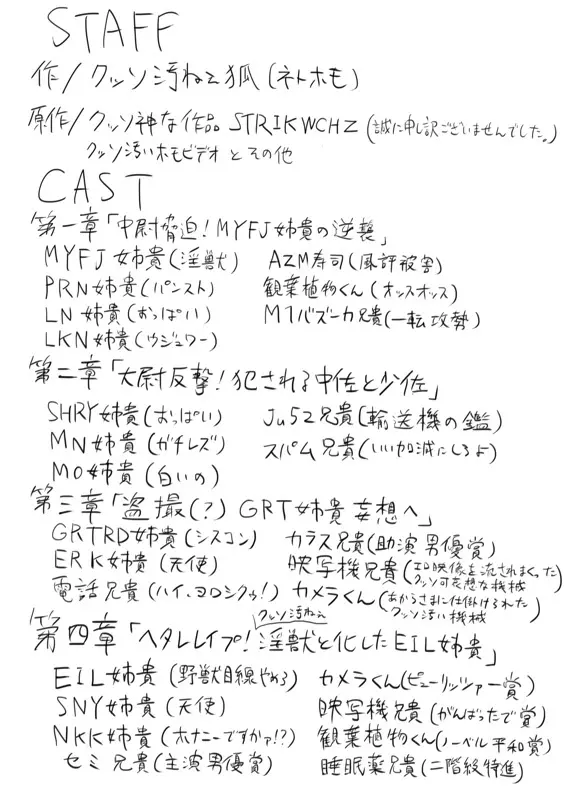 STAFF
作/クッソ汚ねえ狐(ネトホモ)
原作/クッソ神な作品 STRIKWCHZ(誠に申し訳ございませんでした。)
クッソ汚いホモビデオとその他
CAST
第一章「中尉脅迫!MYFJ姉貴の逆襲」
MYFJ姉貴(淫獣) AZM寿司(風評被害)
PRN姉貴(パンスト) 観葉植物くん(オッスオッス)
LN姉貴(おっぱい) M1バズーカ兄貴(一転攻勢)
LKN姉貴(ウジュワー)
第二章「大尉反撃!犯される中佐と少佐」
SHRY姉貴(おっぱい) Ju52兄貴(輸送機の鑑)
MN姉貴(ガチレズ) スパム兄貴(いい加減にしろよ)
MO姉貴(白いの)
第三章「盗撮(?)GRT姉貴妄想へ」
GRTRD姉貴(シスコン) カラス兄貴(助演男優賞)
ERK姉貴(天使) 映写機兄貴(エロ映像を流されまくったクッソ可哀想な機械)
電話兄貴(ハイ、ヨロシクゥ!) カメラくん(あからさまに仕掛けられたクッソ汚い機械)
第四章「ヘタレレイプ!クッソ汚ねえ淫獣と化したEIL姉貴」
EIL姉貴(野獣目線やめろ) カメラくん(ピューリッツァー賞)
SNY姉貴(天使) 映写機兄貴(がんばったで賞)
NKK姉貴(オナニーですかァ!?) 観葉植物くん(ノーベル平和賞)
セミ兄貴(主演男優賞) 睡眠薬兄貴(二階級特進)